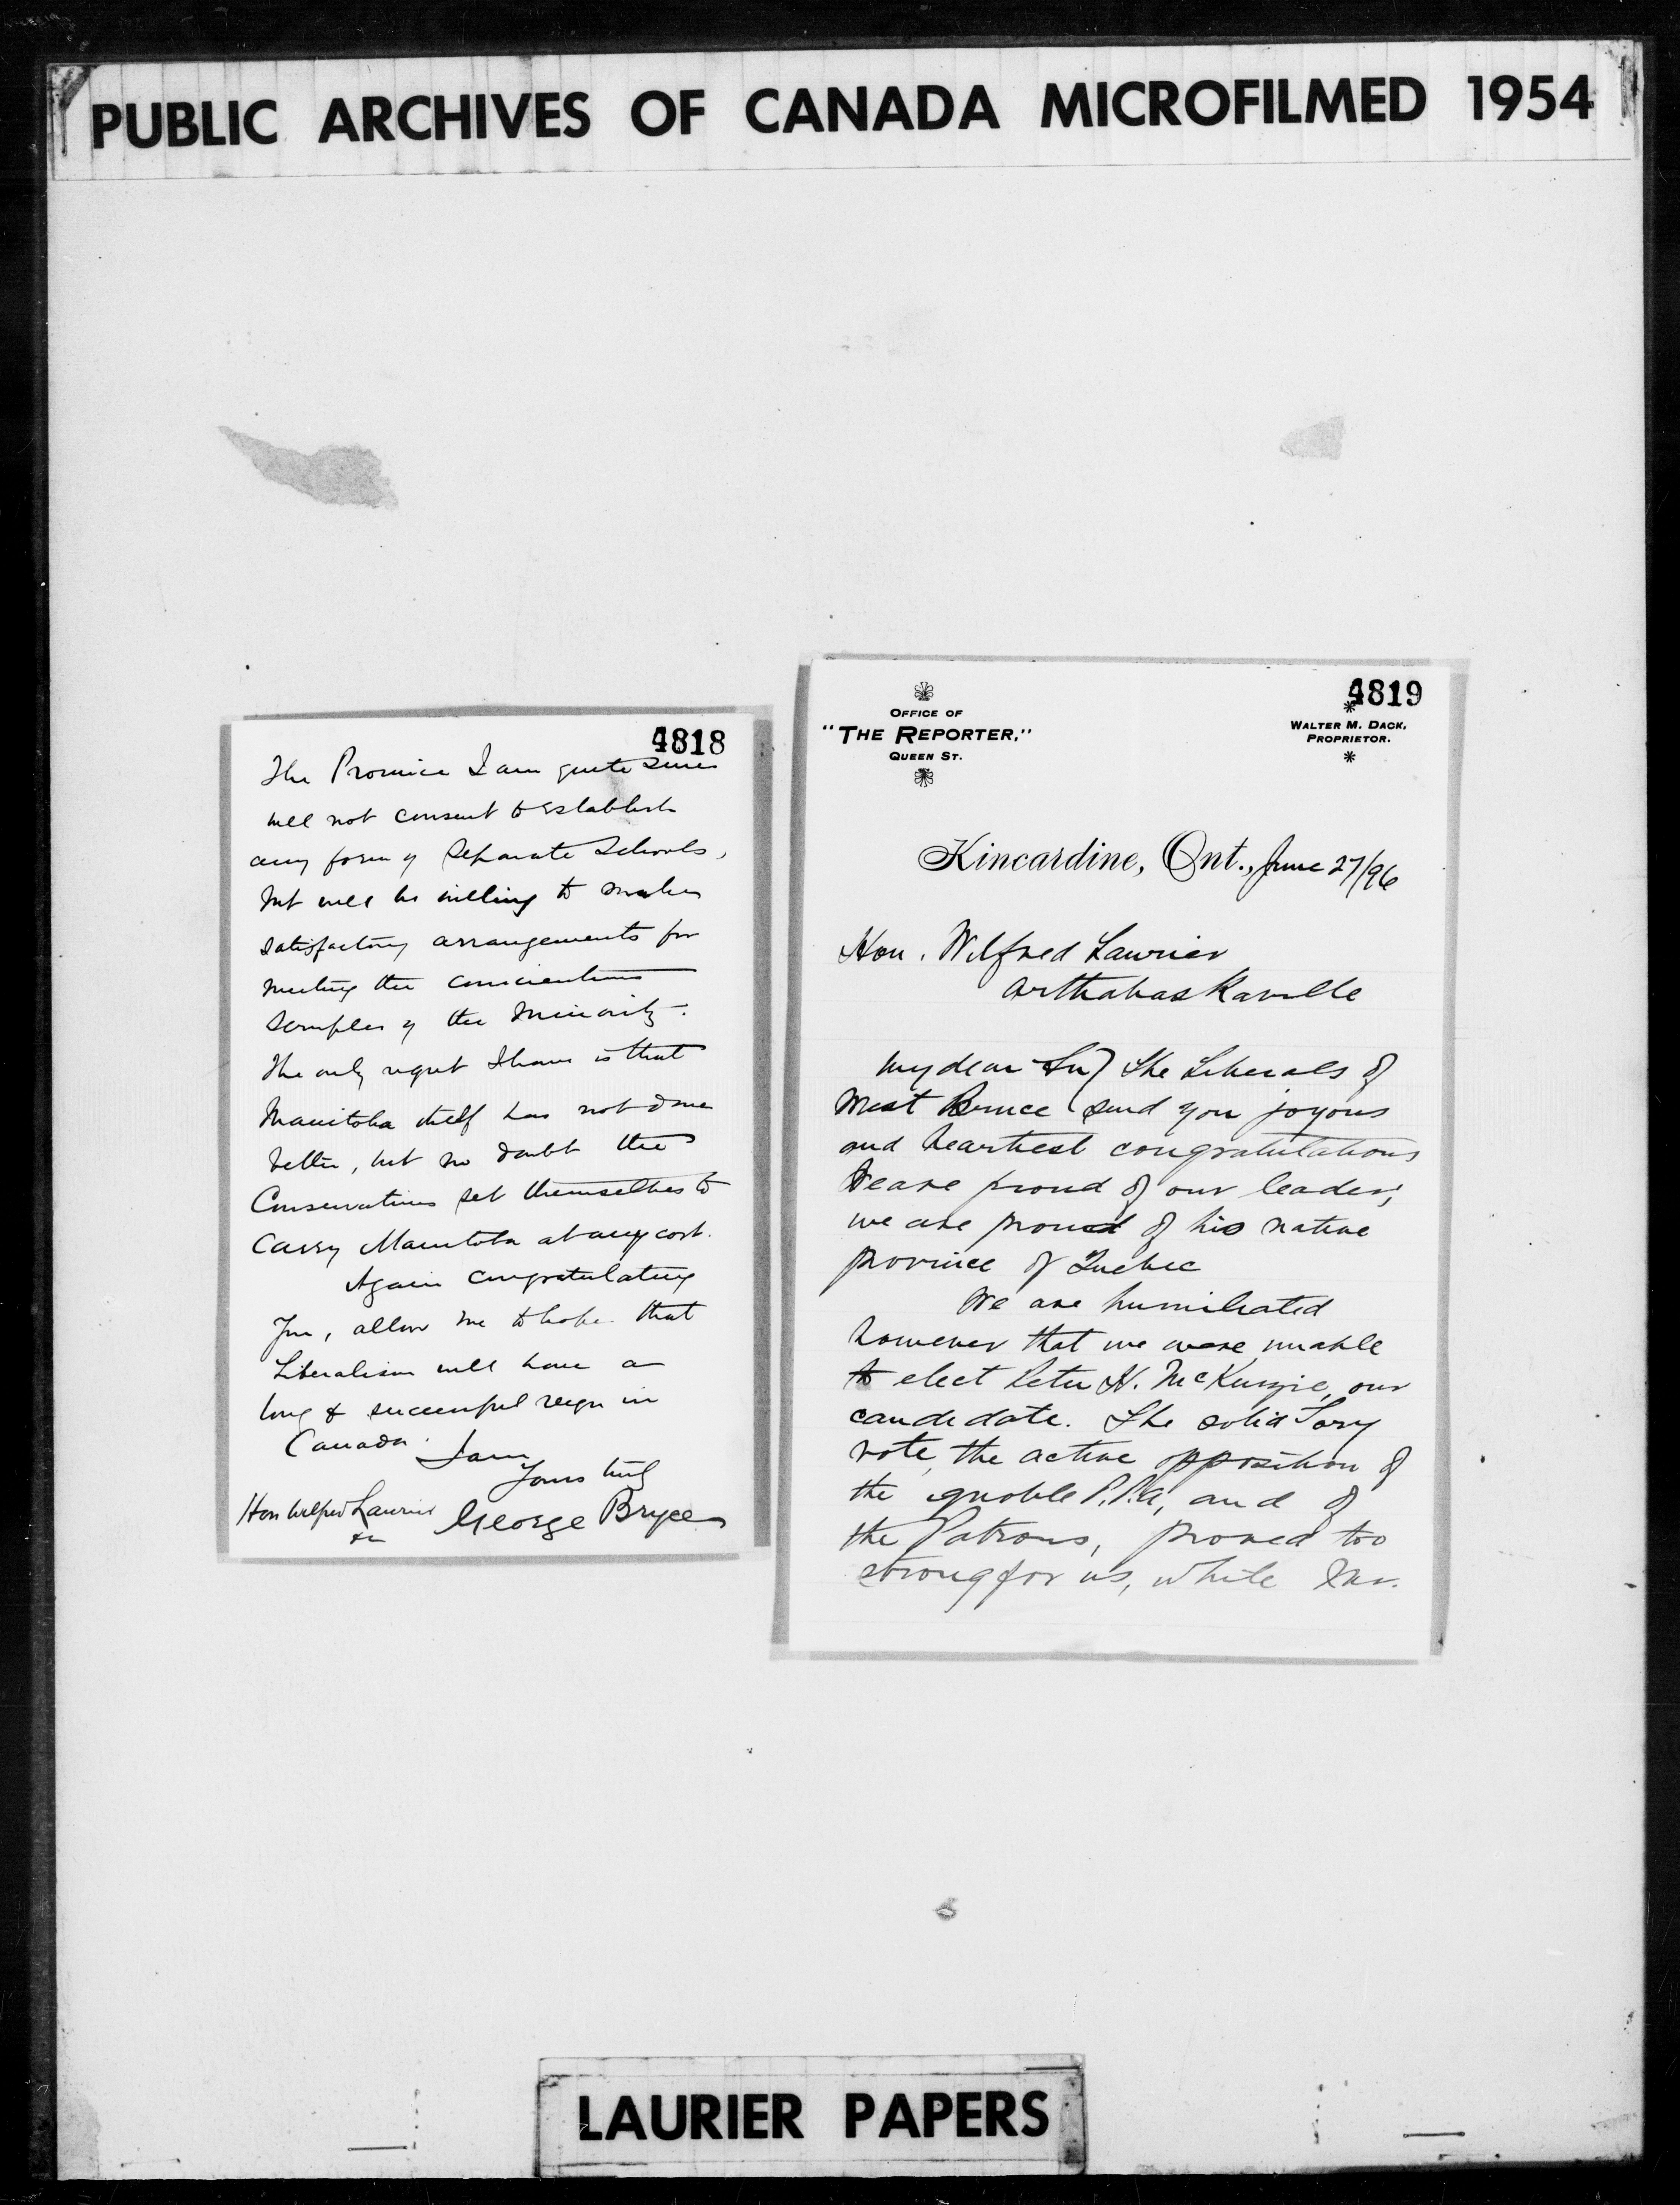 PUBLIC ARCHIVES OF CANADA MICROFILMED 1954
4818
The Province I am quite sure
will not consent to establish
any form of Separate Schools,
but will be willing to make
satisfactory arrangements for
meeting the conscientious
scruples of the Minority.
The only regret I have is that
Manitoba itself has not done
better, but no doubt the
Conservatives set themselves to
Carry Manitoba at any cost.
Again congratulating
You, allow me to hope that
Liberalism will have a
long & successful reign in
Canada. I am
Yours truly
Hon Wilfred Laurier George Bryce
&c
4819
OFFICE OF
"THE REPORTER,"
QUEEN ST.
WALTER M. DACK,
PROPRIETOR.
Kincardine, Ont., June 27/96
Hon. Wilfred Laurier
Arthabaskaville
My dear Sir) The Liberals of
West Bruce send you joyous
and heartiest congratulations
We are proud of our leader;
we are proud of his native
province of Quebec
We are humiliated
however that we were unable
to elect Peter H. McKenzie, our
candidate. The solid Tory
vote, the active opposition of
the ignoble P.P.A, and of
the Patrons, proved too
strong for us, while Mr.
LAURIER PAPERS